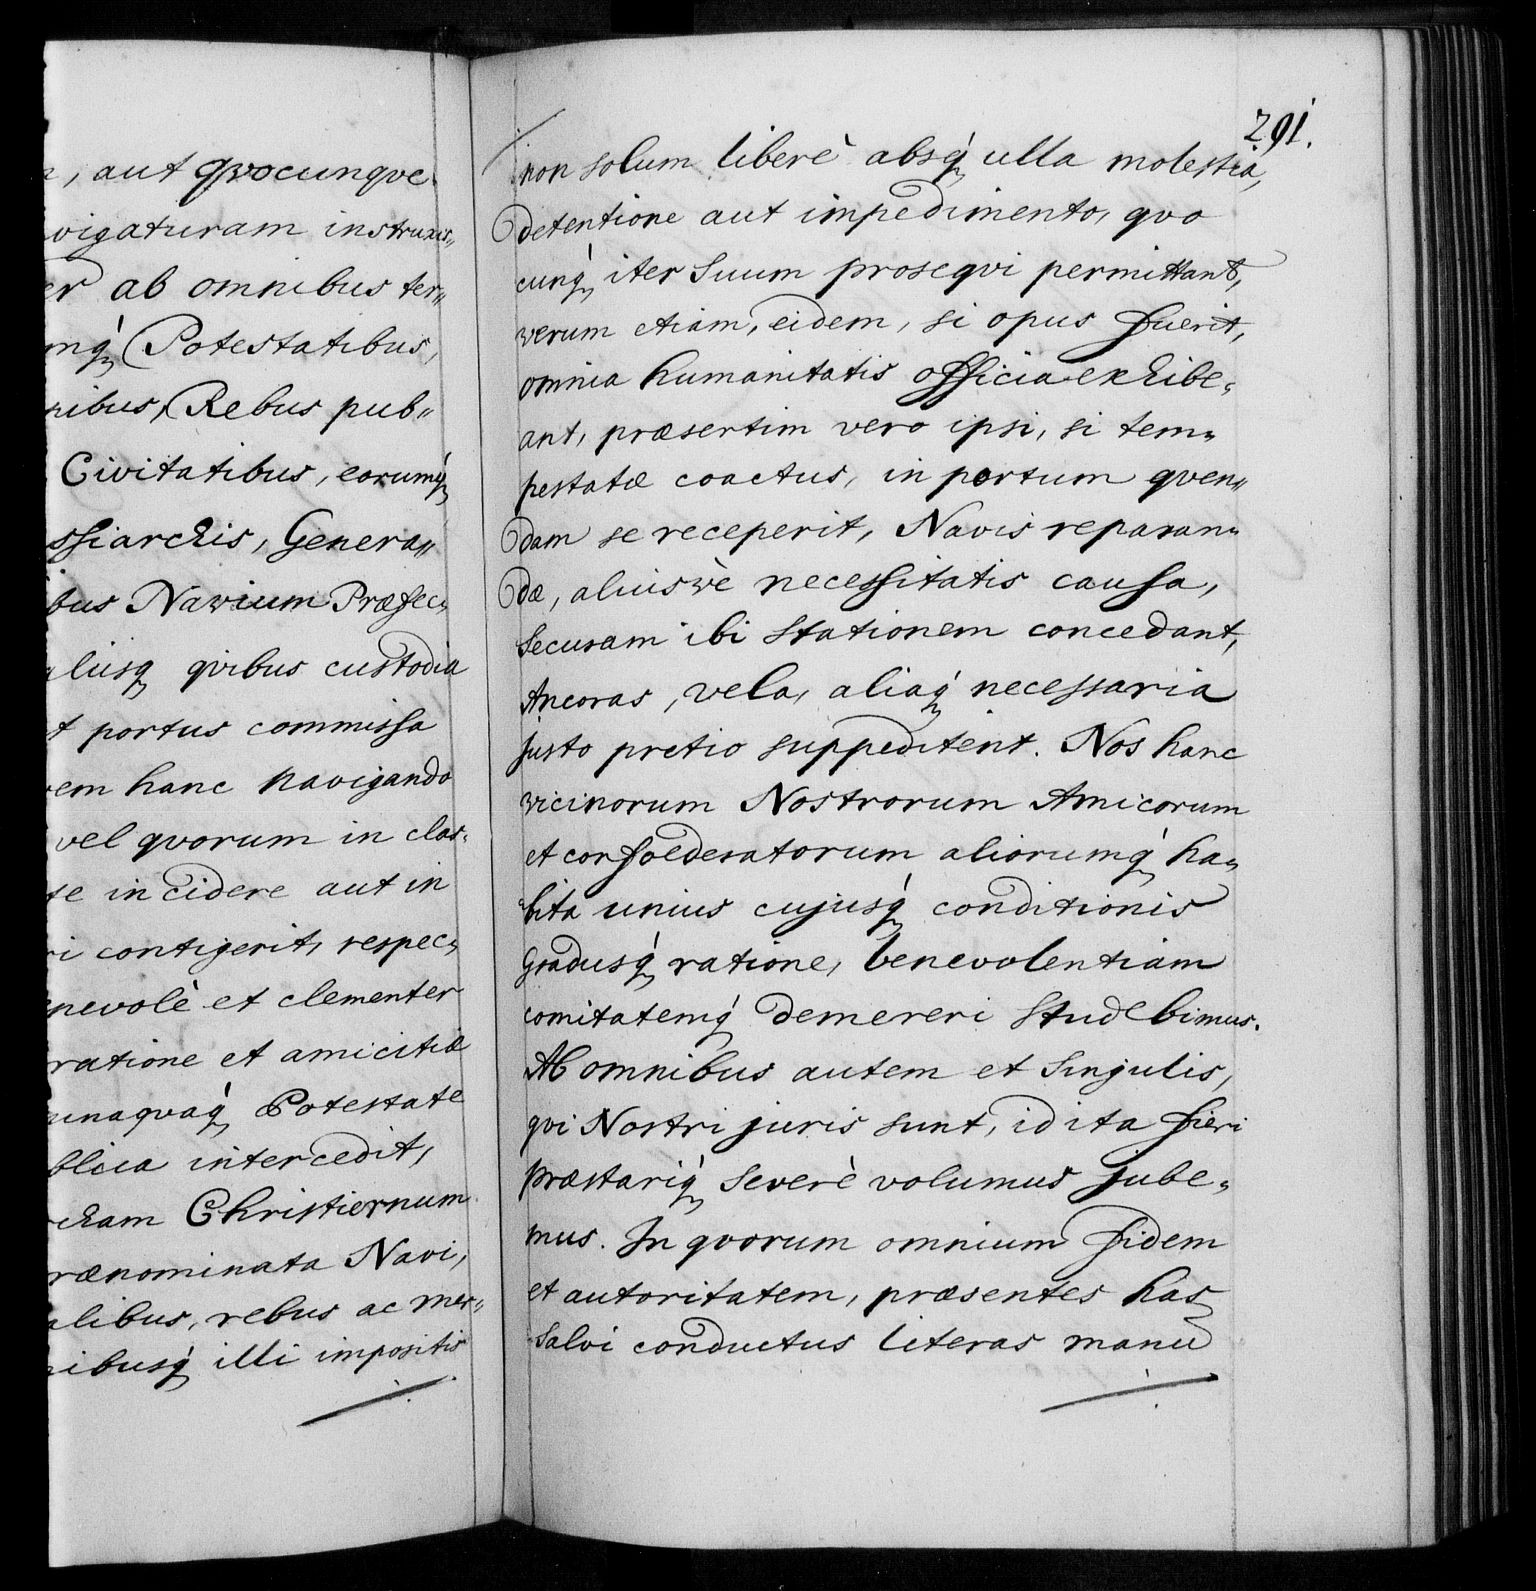 aut qvocunqve
vigaturam instruxis„
ab omnibus ter„
mq́ Potestatibus,
nibus, Rebus pub„
Civitatibus, eorumq́
ssiarchis, Genera„
bus Navium Præfec„
aliisq qvibus custodia
t portus commissa
em hanc navigando
vel qvorum in clas„
te incidere aut in
ri contigerit, respec„
nevolè et clementer
ratione et amicitiæ
unaqvaq́ Potestate
blica intercedit,
cham Christiernum
rænominata Navi,
alibus, rebus ac mer„
nibusq́ illi impositis
291.
non solum liberè absq́ ulla molestia,
detentione aut impedimento, qvo
cunq́ iter suum proseqvi permittant,
verum etiam, eidem, si opus fuerit,
omnia humanitatis officia exhibe„
ant, præsertim vero ipsi, si tem„
pestate coactus, in portum qven„
dam se receperit, Navis reparan„
dæ, aliusvè necessitatis causa,
securam ibi stationem concedant,
Ancoras, vela, aliaq́ necessaria
justo pretio suppeditent. Nos hanc
vicinorum Nostrorum Amicorum
et confoederatorum aliorumq́ ha„
bita unius cujusq́ conditionis
gradusq́ ratione, benevolentiam
comitatemq́ demereri studebimus.
Ab omnibus autem et singulis,
qvi Nostri juris sunt, id ita fieri
præstariq́ severè volumus jube„
mus. In qvorum omnium fidem
et autoritatem, præsentes has
salvi conductus literas manu